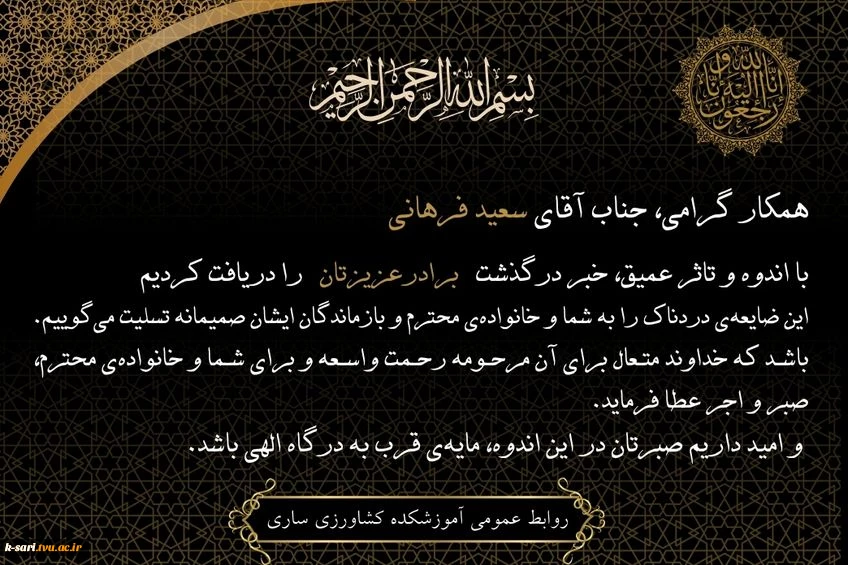 بسم الله الرحمن الرحیم
انا لله و انا الیه راجعون
همکار گرامی، جناب آقای سعید فرهانی
با اندوه و تاثر عمیق، خبر درگذشت برادرعزیزتان را دریافت کردیم
این ضایعه‌ی دردناک را به شما و خانواده‌ی محترم و بازماندگان ایشان صمیمانه تسلیت می‌گوییم.
باشد که خداوند متعال برای آن مرحومه رحمت واسعه و برای شما و خانواده‌ی محترم،
صبر و اجر عطا فرماید.
و امید داریم صبرتان در این اندوه، مایه‌ی قرب به درگاه الهی باشد.
روابط عمومی آموزشکده کشاورزی ساری
k-sari.tvu.ac.ir